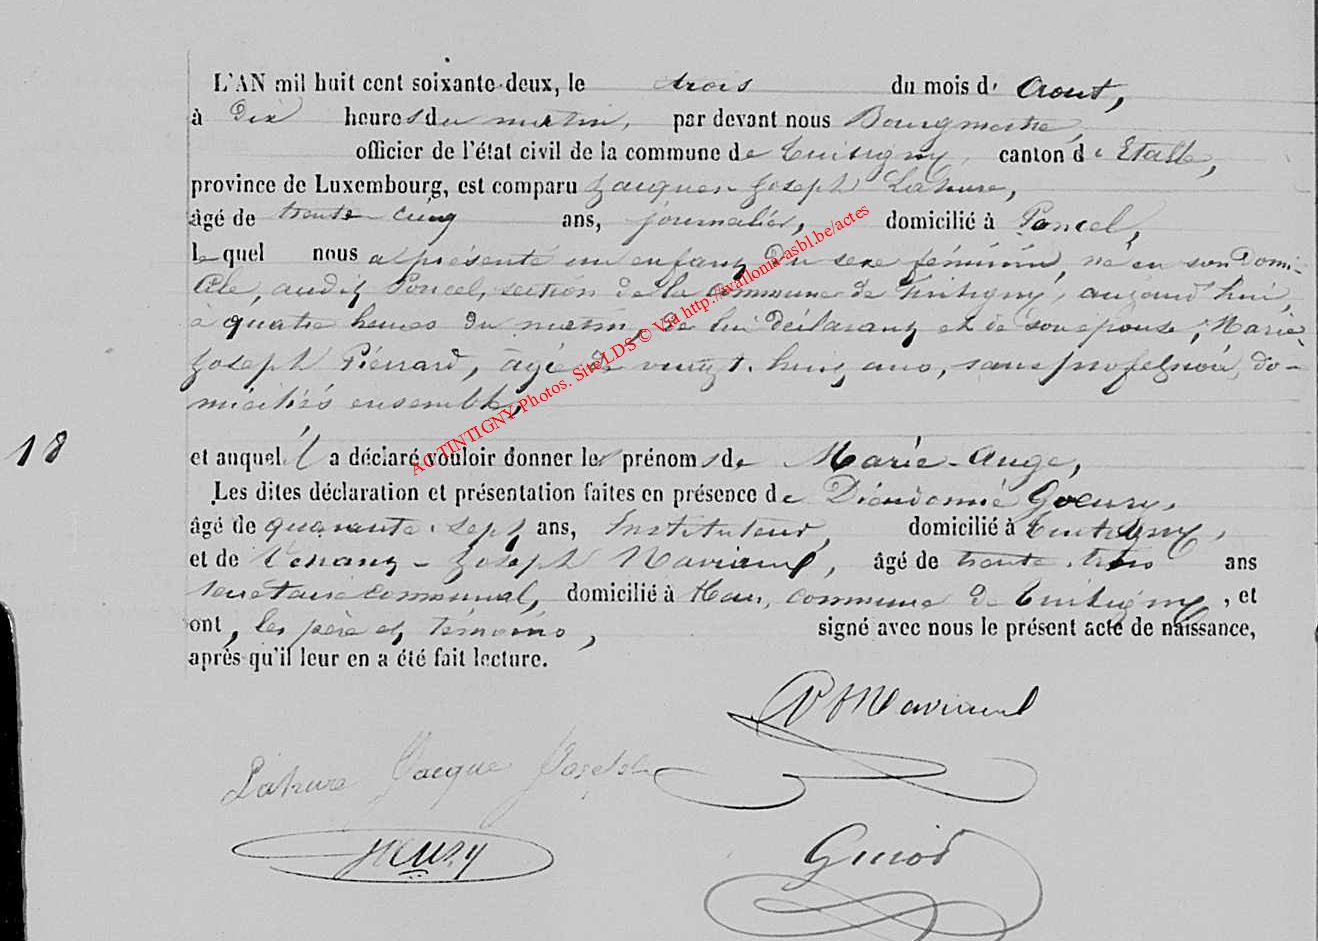 L'AN mil huit cent soixante-deux, le trois du mois d' Aout,
à dix heures du matin, par devant nous Bourgmestre,
officier de l'état civil de la commune de Tintigny, canton d'Etalle,
province de Luxembourg, est comparu Jacques-Joseph Lahure,
âgé de trente-cinq ans, journalier, domicilié à Poncel,
lequel nous a présenté un enfant du sexe féminin, né en son domi-
cile, audit Poncel, section de la commune de Tintigny, aujourd'hui,
à quatre heures du matin, de lui déclarant et de son epouse, Marie
Joseph Piérrard, agée de vingt-huit ans, sans profession, do-
miciliés ensemble,
18
et auquel il a déclaré vouloir donner les prénoms de Marie-Ange,
Les dites déclaration et présentation faites en présence de Diéudonné Goeury,
âgé de quarante-sept ans, Instituteur, domicilié à Tintigny,
et de Joseph Maviaux, âgé de trente-trois ans
secretaire communal, domicilié à Han, commune de Tintigny, et
ont, les père et témoins, signé avec nous le présent acte de naissance,
après qu'il leur en a été fait lecture.
Lahure Jacque Joseph
ACTINTIGNY Photos. Site LDS © Via http://wallonia-asbl.be/actes